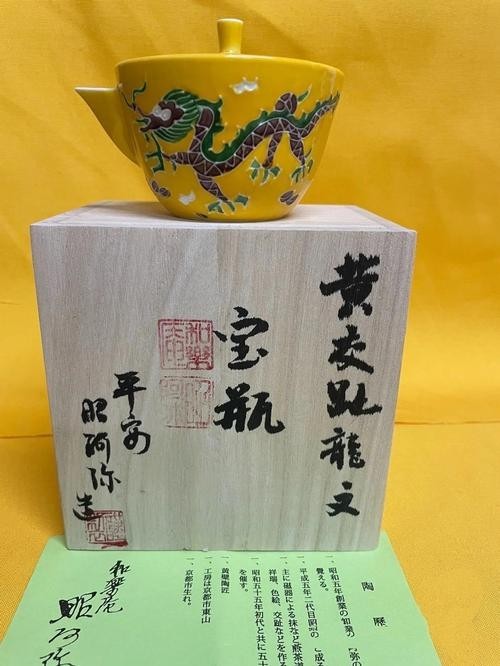 黄交趾龍文
宝瓶
平安
昭阿弥造
陶歴
一、昭和五年創業の
覚える。
一、平成五年二代目昭
一、主に磁器による抹など煎茶道
祥瑞、色絵、交趾などを作る
一、昭和五十五年初代と共に五十
を催す。
一、黄檗陶匠
一、工房は京都市東山
一、京都市生れ。
和楽庵
昭阿弥